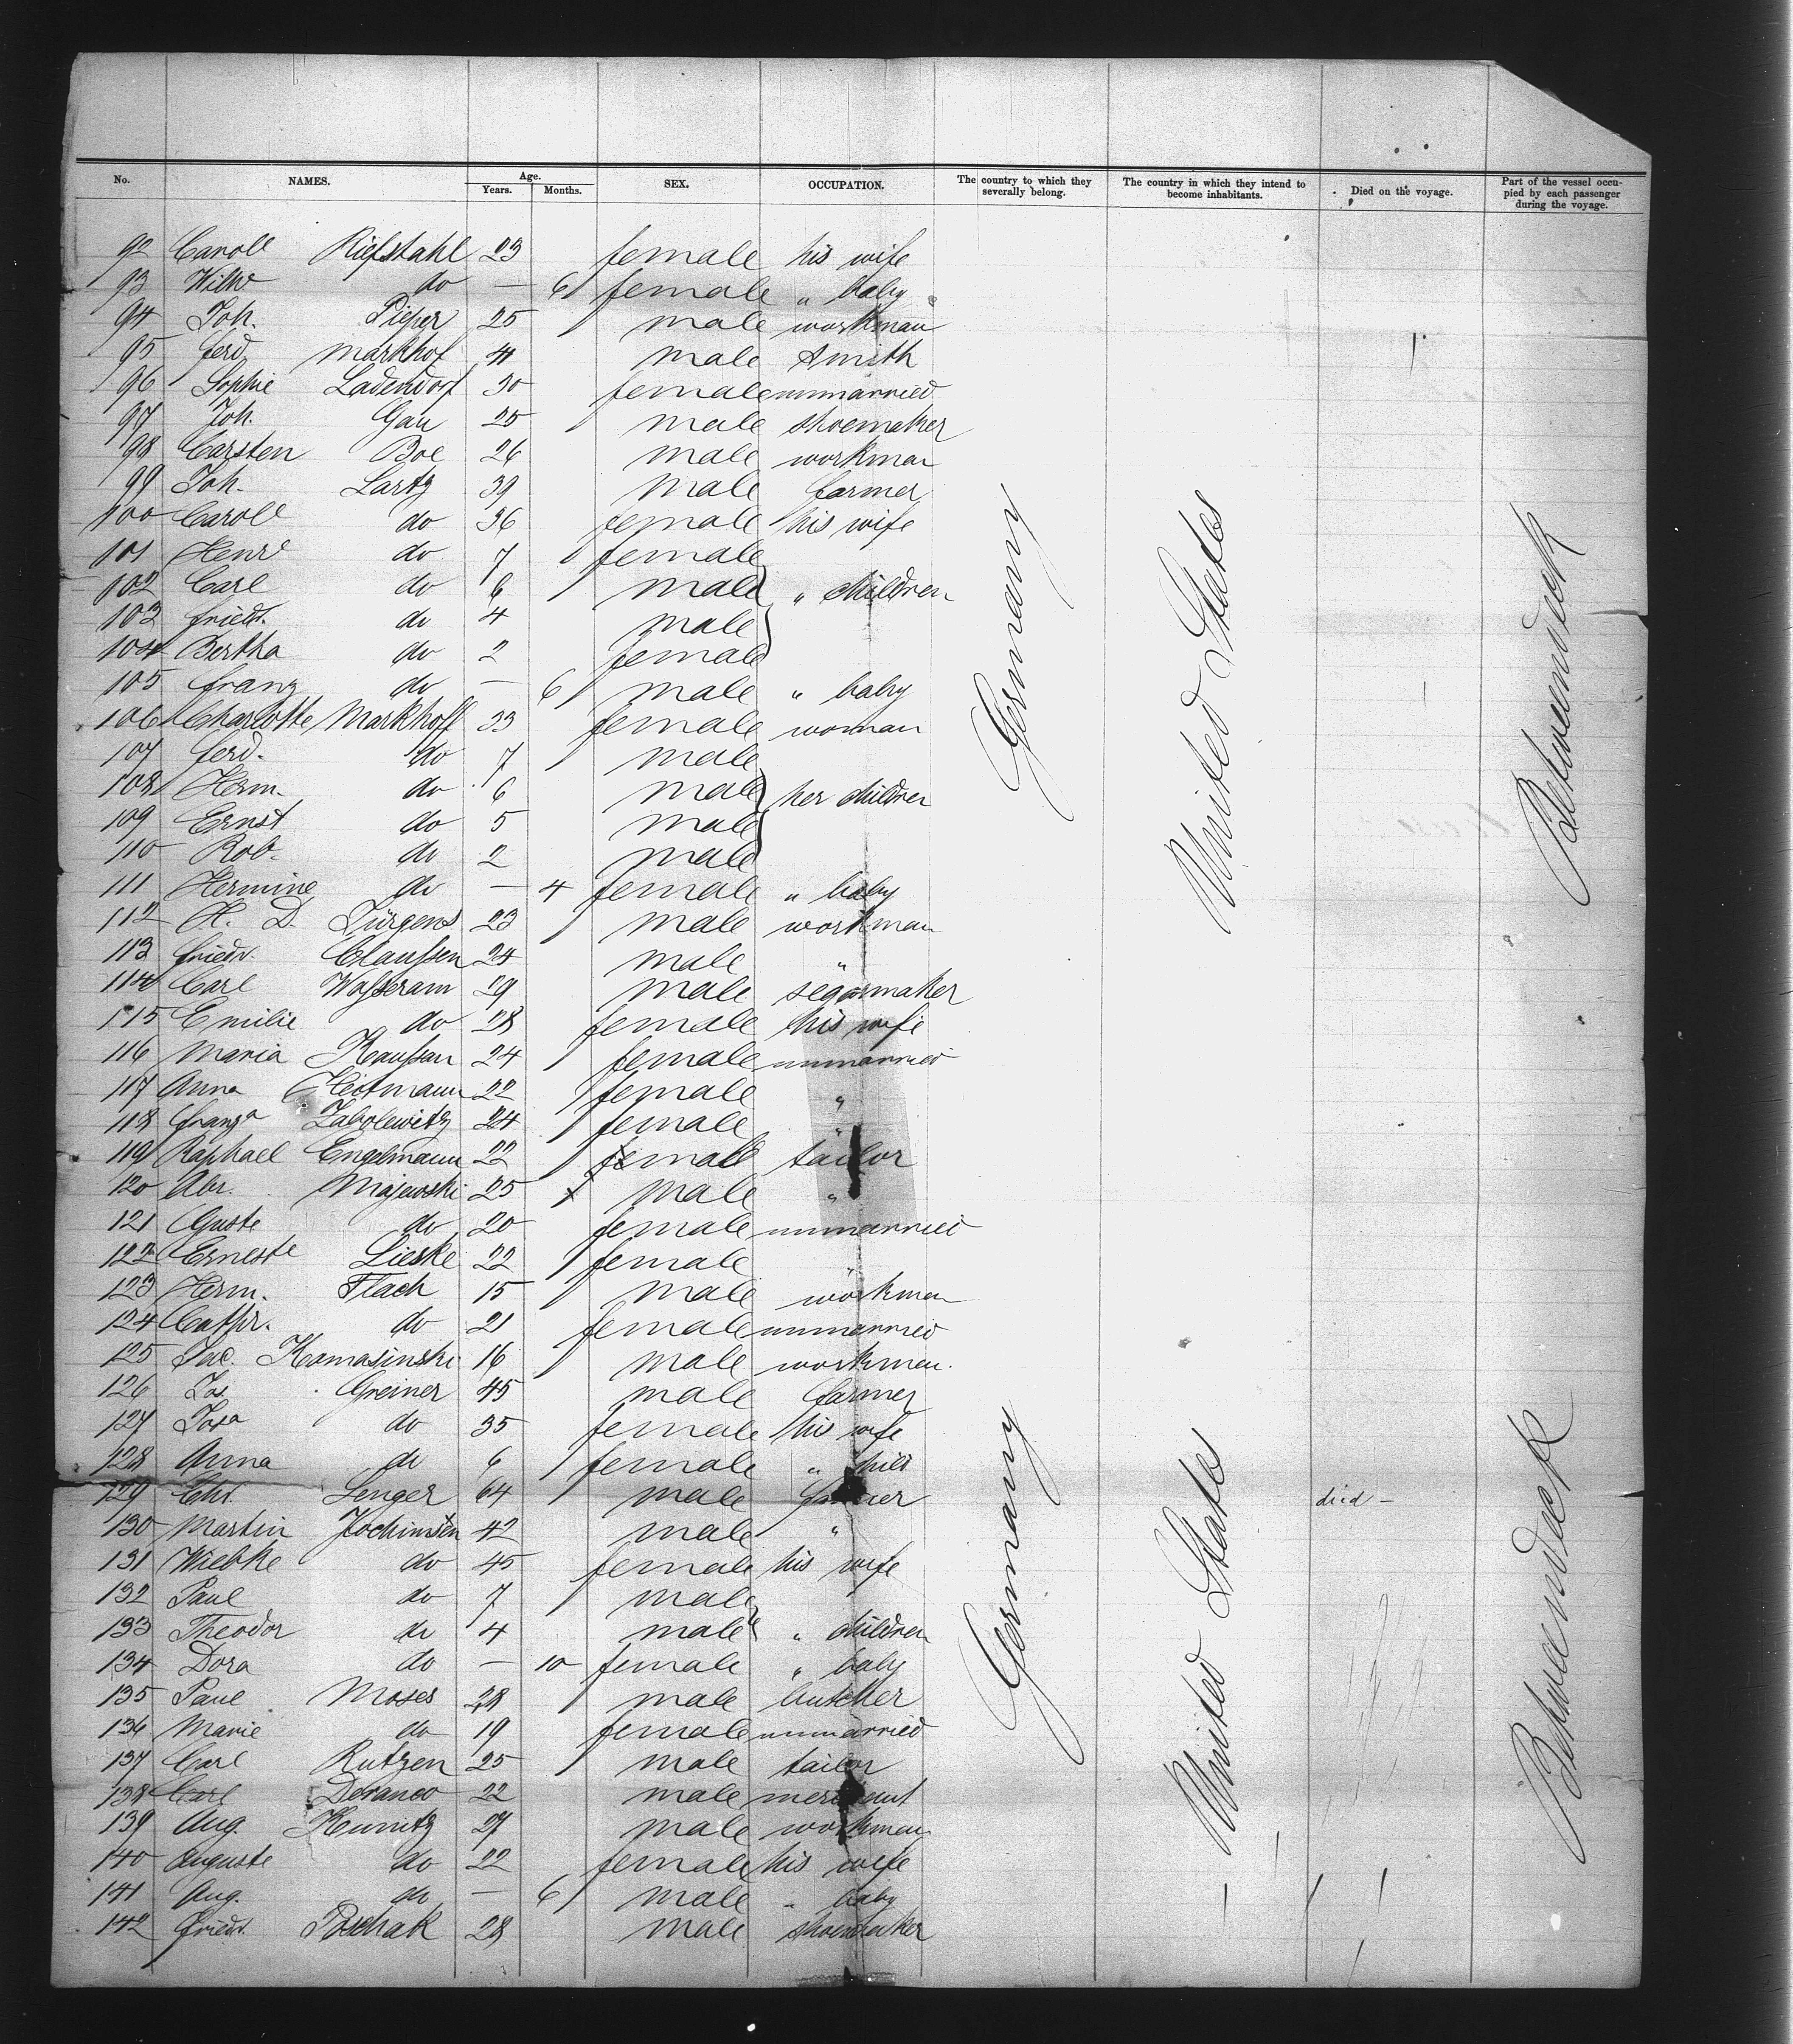 No. NAMES. Age. Years. Months. SEX. OCCUPATION. The country to which they severally belong. The country in which they intend to become inhabitants. Died on the voyage. Part of the vessel occupied by each passenger during the voyage.
92 Carole Riefstahl 23 female his wife
93 Wilhe do — 6 female " baby
94 Joh. Pieper 25 male workman
95 Ferd. Markhof 4 male Smith
96 Sophie Ladendorf 30 female unmarried
97 Joh. Gau 25 male shoemaker
98 Carsten Boe 26 male workman
99 Joh. Lartz 39 male farmer
100 Carole do 36 female his wife
101 Henre do 7 female
102 Carl do 6 male " children
103 Friedr. do 4 male
104 Bertha do 2 female
105 Franz do — 6 male " baby
106 Charlotte Markhoff 33 female woman
107 Ferd. do 7 male
108 Herm. do 6 male her children
109 Ernst do 5 male
110 Rob. do 2 male
111 Hermine do — 4 female " baby
112 H. D. Jürgens 23 male workman
113 Friedr. Claussen 24 male "
114 Carl Wasseram 29 male segarmaker
115 Emilie do 28 female his wife
116 Maria 24 female unmarried
117 Anna Heitmann 22 female "
118 Franza Zabolewitz 24 female "
119 Raphael Engelmann 22 female tailor
120 Abr. Majewski 25 male "
121 Guste do 20 female unmarried
122 Erneste Lieske 22 female "
123 Herm. Flach 15 male workman
124 Cathr. do 21 female unmarried
125 Jac. Komasinski 16 male workman.
126 Jos Greiner 45 male farmer
127 Josa do 35 female his wife
128 Anna do 6 female " child
129 Chr. Lenger 64 male farmer died —
130 Martin Jochimsen 42 male "
131 Wiebke do 45 female his wife
132 Paul do 7 male
133 Theodor do 4 male " children
134 Dora do — 10 female " baby
135 Paul Moses 28 male butcher
136 Marie do 19 female unmarried
137 Carl Rutzen 25 male tailor
138 Carl 22 male merchant
139 Aug. Kunitz 27 male workman
140 Auguste do 22 female his wife
141 Aug. do — 6 male " baby
142 Friedr. Poschak 28 male shoemaker
Germany
United States
Betweendeck
Germany
United States
Betweendeck